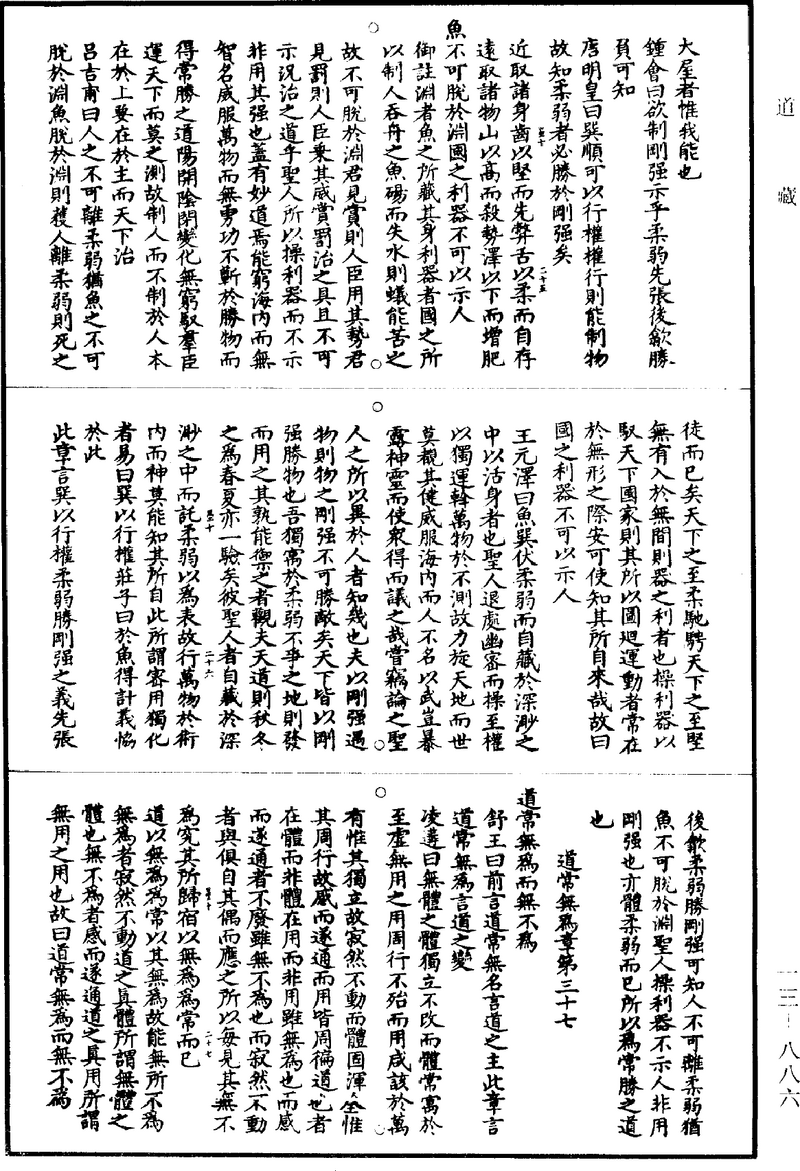 道藏
大屋者惟我能也
鍾會曰欲制剛强示乎柔弱先張後歙勝
負可知
唐明皇曰巽順可以行權權行則能制物
故知柔弱者必勝於剛强矣
近取諸身齒以堅而先弊舌以柔而自存
遠取諸物山以高而殺勢澤以下而增肥
魚不可脫於淵國之利器不可以示人
御註淵者魚之所藏其身利器者國之所
以制人吞舟之魚碭而失水則蟻能苦之
故不可脫於淵君見賞則人臣用其勢君
見罰則人臣乘其威賞罰治之具且不可
示況治之道乎聖人所以操利器而不示
非用其强也蓋有妙道焉能窮海內而無
智名威服萬物而無勇功不蘄於勝物而
得常勝之道陽開陰閉變化無窮馭羣臣
運天下而莫之測故制人而不制於人本
在於上要在於主而天下治
呂吉甫曰人之不可離柔弱猶魚之不可
脫於淵魚脫於淵則獲人離柔弱則死之
徒而已矣天下之至柔馳騁天下之至堅
無有入於無間則器之利者也操利器以
馭天下國家則其所以圖迴運動者常在
於無形之際安可使知其所自來哉故曰
國之利器不可以示人
王元澤曰魚巽伏柔弱而自藏於深渺之
中以活身者也聖人退處幽密而操至權
以獨運斡萬物於不測故力旋天地而世
莫覩其健威服海內而人不名以武豈暴
露神靈而使衆得而議之哉嘗竊論之聖
人之所以異於人者知幾也夫以剛强遇
物則物之剛强不可勝敵矣天下皆以剛
强勝物也吾獨寓於柔弱不爭之地則發
而用之其孰能禦之者觀夫天道則秋冬
之爲春夏亦一驗矣彼聖人者自藏於深
渺之中而託柔弱以爲表故行萬物於術
內而神莫能知其所自此所謂密用獨化
者易曰巽以行權莊子曰於魚得計義恊
於此
此章言巽以行權柔弱勝剛强之義先張
後歙柔弱勝剛强可知人不可離柔弱猶
魚不可脫於淵聖人操利器不示人非用
剛强也亦體柔弱而已所以爲常勝之道
也
道常無爲章第三十七
道常無爲而無不爲
舒王曰前言道常無名言道之主此章言
道常無爲言道之變
凌遘曰無體之體獨立不改而體常寓於
至虛無用之用周行不殆而用咸該於萬
有惟其獨立故寂然不動而體固渾全惟
其周行故感而遂通而用皆周徧道也者
在體而非體在用而非用雖無爲也而感
而遂通者不廢雖無不爲也而寂然不動
者與俱自其偶而應之所以每見其無不
爲究其所歸宿以無爲爲常而已
道以無爲爲常以其無爲故能無所不爲
無爲者寂然不動道之眞體所謂無體之
體也無不爲者感而遂通道之眞用所謂
無用之用也故曰道常無爲而無不爲
二十五
二十六
二十七
一三-八八六